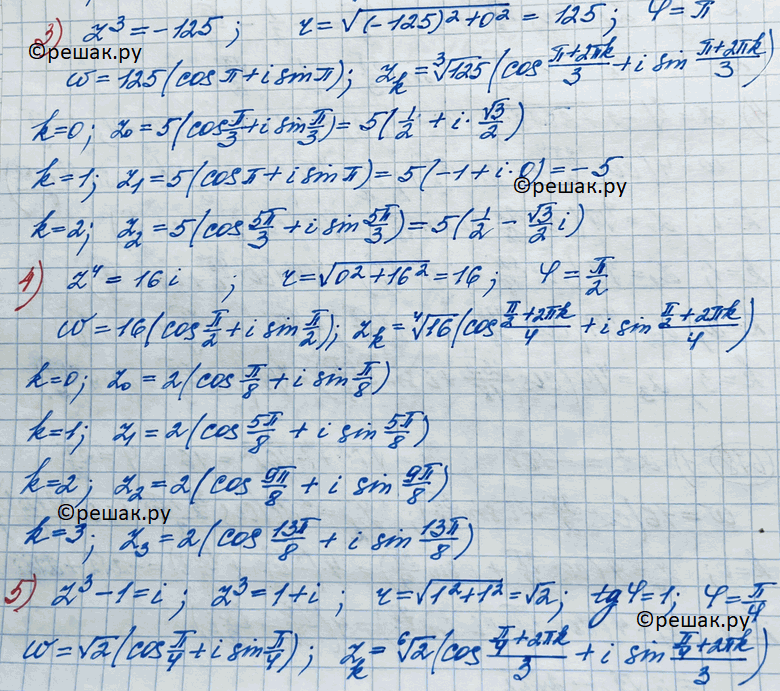 3) z³ = -125; r = √((-125)² + 0²) = 125; φ = π
©решак.ру
w = 125(cos π + i sin π); z_k = ∛125(cos (π+2πk)/3 + i sin (π+2πk)/3)
k=0; z₀ = 5(cos π/3 + i sin π/3) = 5(1/2 + i·√3/2)
k=1; z₁ = 5(cos π + i sin π) = 5(-1 + i·0) = -5
©решак.ру
k=2; z₂ = 5(cos 5π/3 + i sin 5π/3) = 5(1/2 - √3/2 i)
4) z⁴ = 16i; r = √(0² + 16²) = 16; φ = π/2
w = 16(cos π/2 + i sin π/2); z_k = ∜16(cos (π/2+2πk)/4 + i sin (π/2+2πk)/4)
k=0; z₀ = 2(cos π/8 + i sin π/8)
k=1; z₁ = 2(cos 5π/8 + i sin 5π/8)
k=2; z₂ = 2(cos 9π/8 + i sin 9π/8)
©решак.ру
k=3; z₃ = 2(cos 13π/8 + i sin 13π/8)
5) z³ - 1 = i; z³ = 1 + i; r = √(1² + 1²) = √2; tg φ = 1; φ = π/4
©решак.ру
w = √2(cos π/4 + i sin π/4); z_k = ⁶√2(cos (π/4+2πk)/3 + i sin (π/4+2πk)/3)